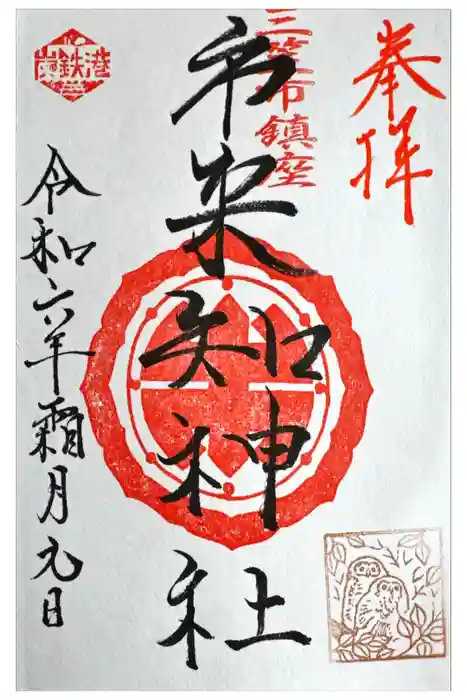 奉拝
三笠市鎮座
市来知神社
令和六年霜月九日